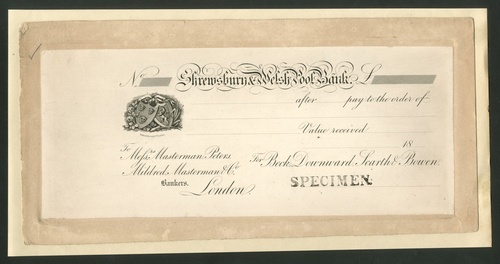 No Shrewsbury & Welsh Pool Bank. £
after pay to the order of
Value received
18
To
Messrs Masterman, Peters,
Mildred, Masterman & Co.
Bankers,
London,
For Beck, Downward, Scarth & Bowen,
SPECIMEN.